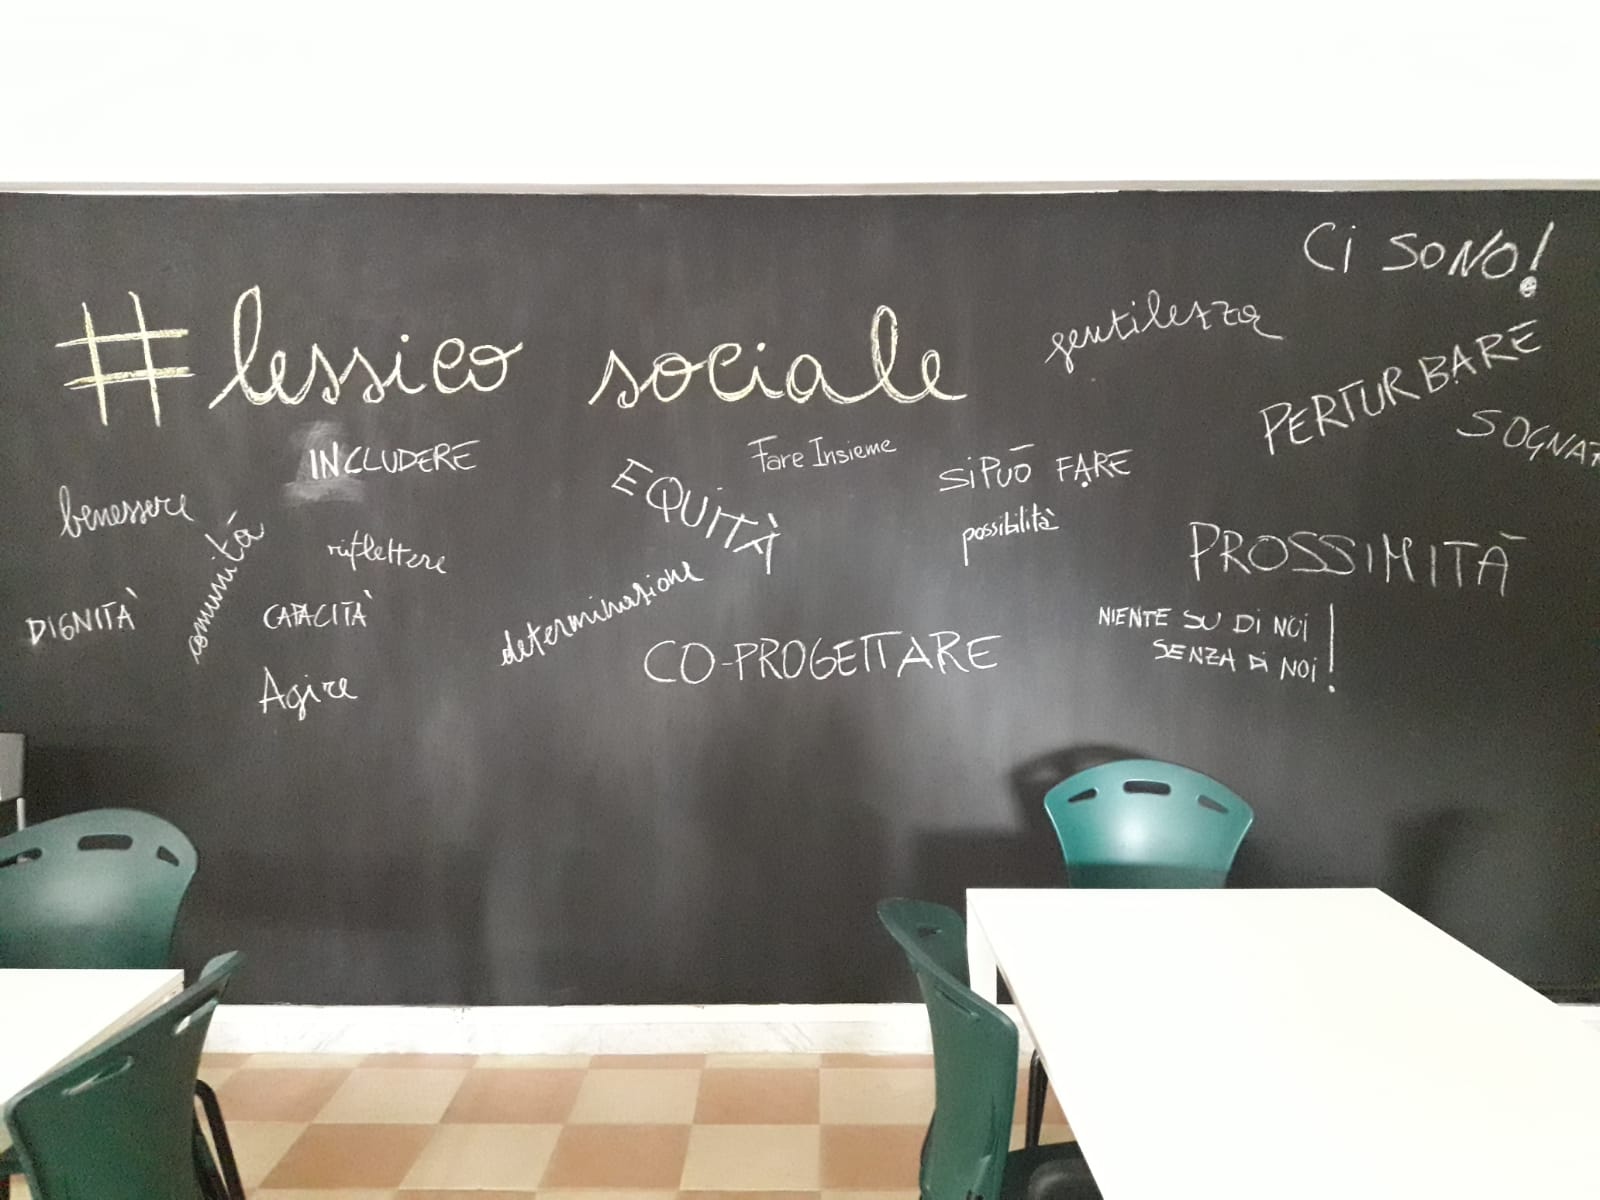 #lessico sociale
CI SONO!
gentilezza
PERTURBARE
SOGNA
INCLUDERE
Fare Insieme
EQUITÀ
SI PUÒ FARE
possibilità
benessere
comunità
riflettere
PROSSIMITÀ
DIGNITÀ
CAPACITÀ
determinazione
CO-PROGETTARE
NIENTE SU DI NOI
SENZA DI NOI!
Agire